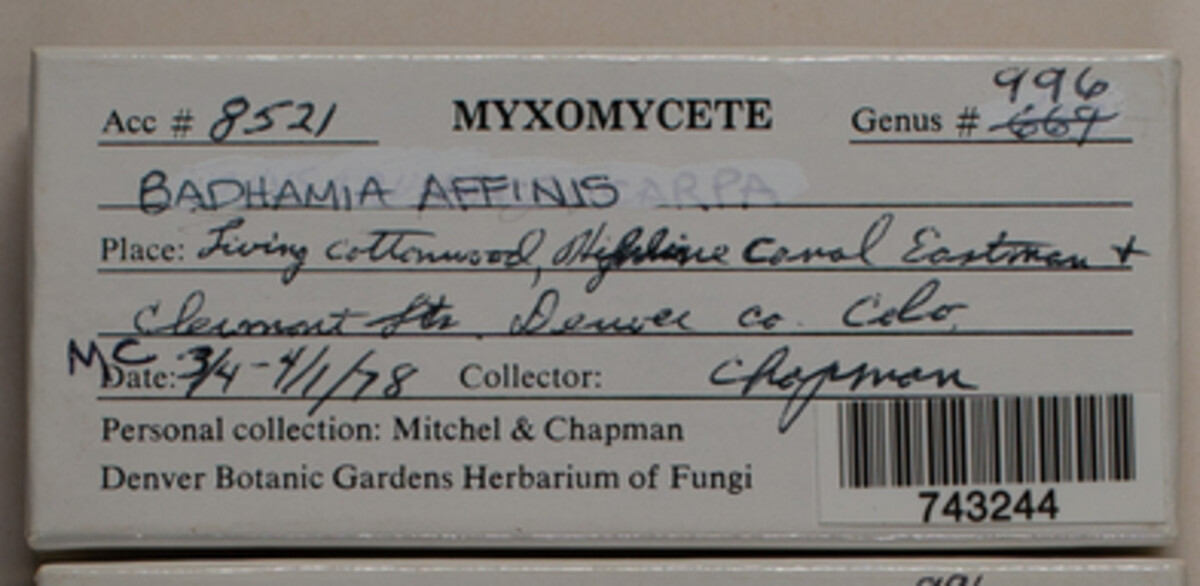 996
Acc # 8521 MYXOMYCETE Genus # 669
BADHAMIA AFFINIS ARPA
Place: Living cottonwood, Highline Canal Eastman +
Clermont Sts. Denver co. Colo.
MC
Date: 3/4 - 4/1/78 Collector: Chapman
Personal collection: Mitchel & Chapman
Denver Botanic Gardens Herbarium of Fungi
743244